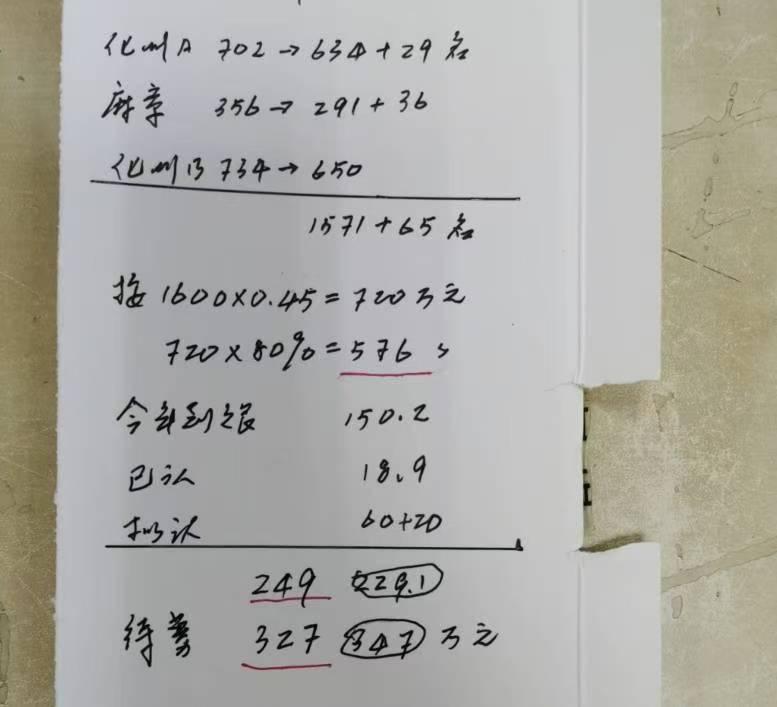 化州A 702→634+29名
麻章 356→291+36
化州B 734→650
1571+65名
按1600×0.45=720万元
720×80%=576
今年到账 150.2
已认 18.9
拟认 60+20
249 229.1
待筹 327 347万元